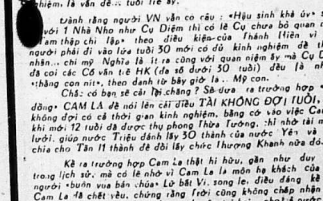 nhiệm, là vấn đề... tuổi trẻ ấy.
Đành rằng người VN vẫn có câu : «Hậu sinh khả úy»
dưới 1 Nhà Nho như Cụ Diệm thì có lẽ Cụ chưa bỏ quan
Tam thập chi lập» theo điều kiện của Thánh Hiền vì
người phải đi vào lứa tuổi 30 mới có đủ kinh nghiệm để
nhân... chí mỹ Nghĩa là ít ra cũng với quan niệm ấy mà Cụ
đã coi các Cố vấn trẻ HK (đa số dưới 30 tuổi) đều là
«thằng con nít», theo danh từ bây giờ là... Mỹ con.
Chắc có bạn sẽ cãi lại chăng ? Sẽ đưa ra trường hợp
đồng» CAM LA để nói lên cái điều TÀI KHÔNG ĐỢI TUỔI,
không đợi cả thời gian kinh nghiệm, bằng cớ vào việc Cam
khi mới 12 tuổi đã được thụ phong Thừa Tướng, chỉ nhờ tài
lưỡi, giúp nước Triệu đánh lấy 30 thành của nước Yên và
chia cho Tần 11 thành để đổi lấy chức Thượng Khanh nữa
Kể ra trường hợp Cam La thật hi hữu, gần như duy
trong lịch sử, mà có lẽ nhờ vì Cam La là môn hạ khách của
người «buôn vua bán chúa» Lữ bất Vi, song le, điều đáng kể
Cam La đã chết yểu, chứng rằng Trời cũng không chấp nhận